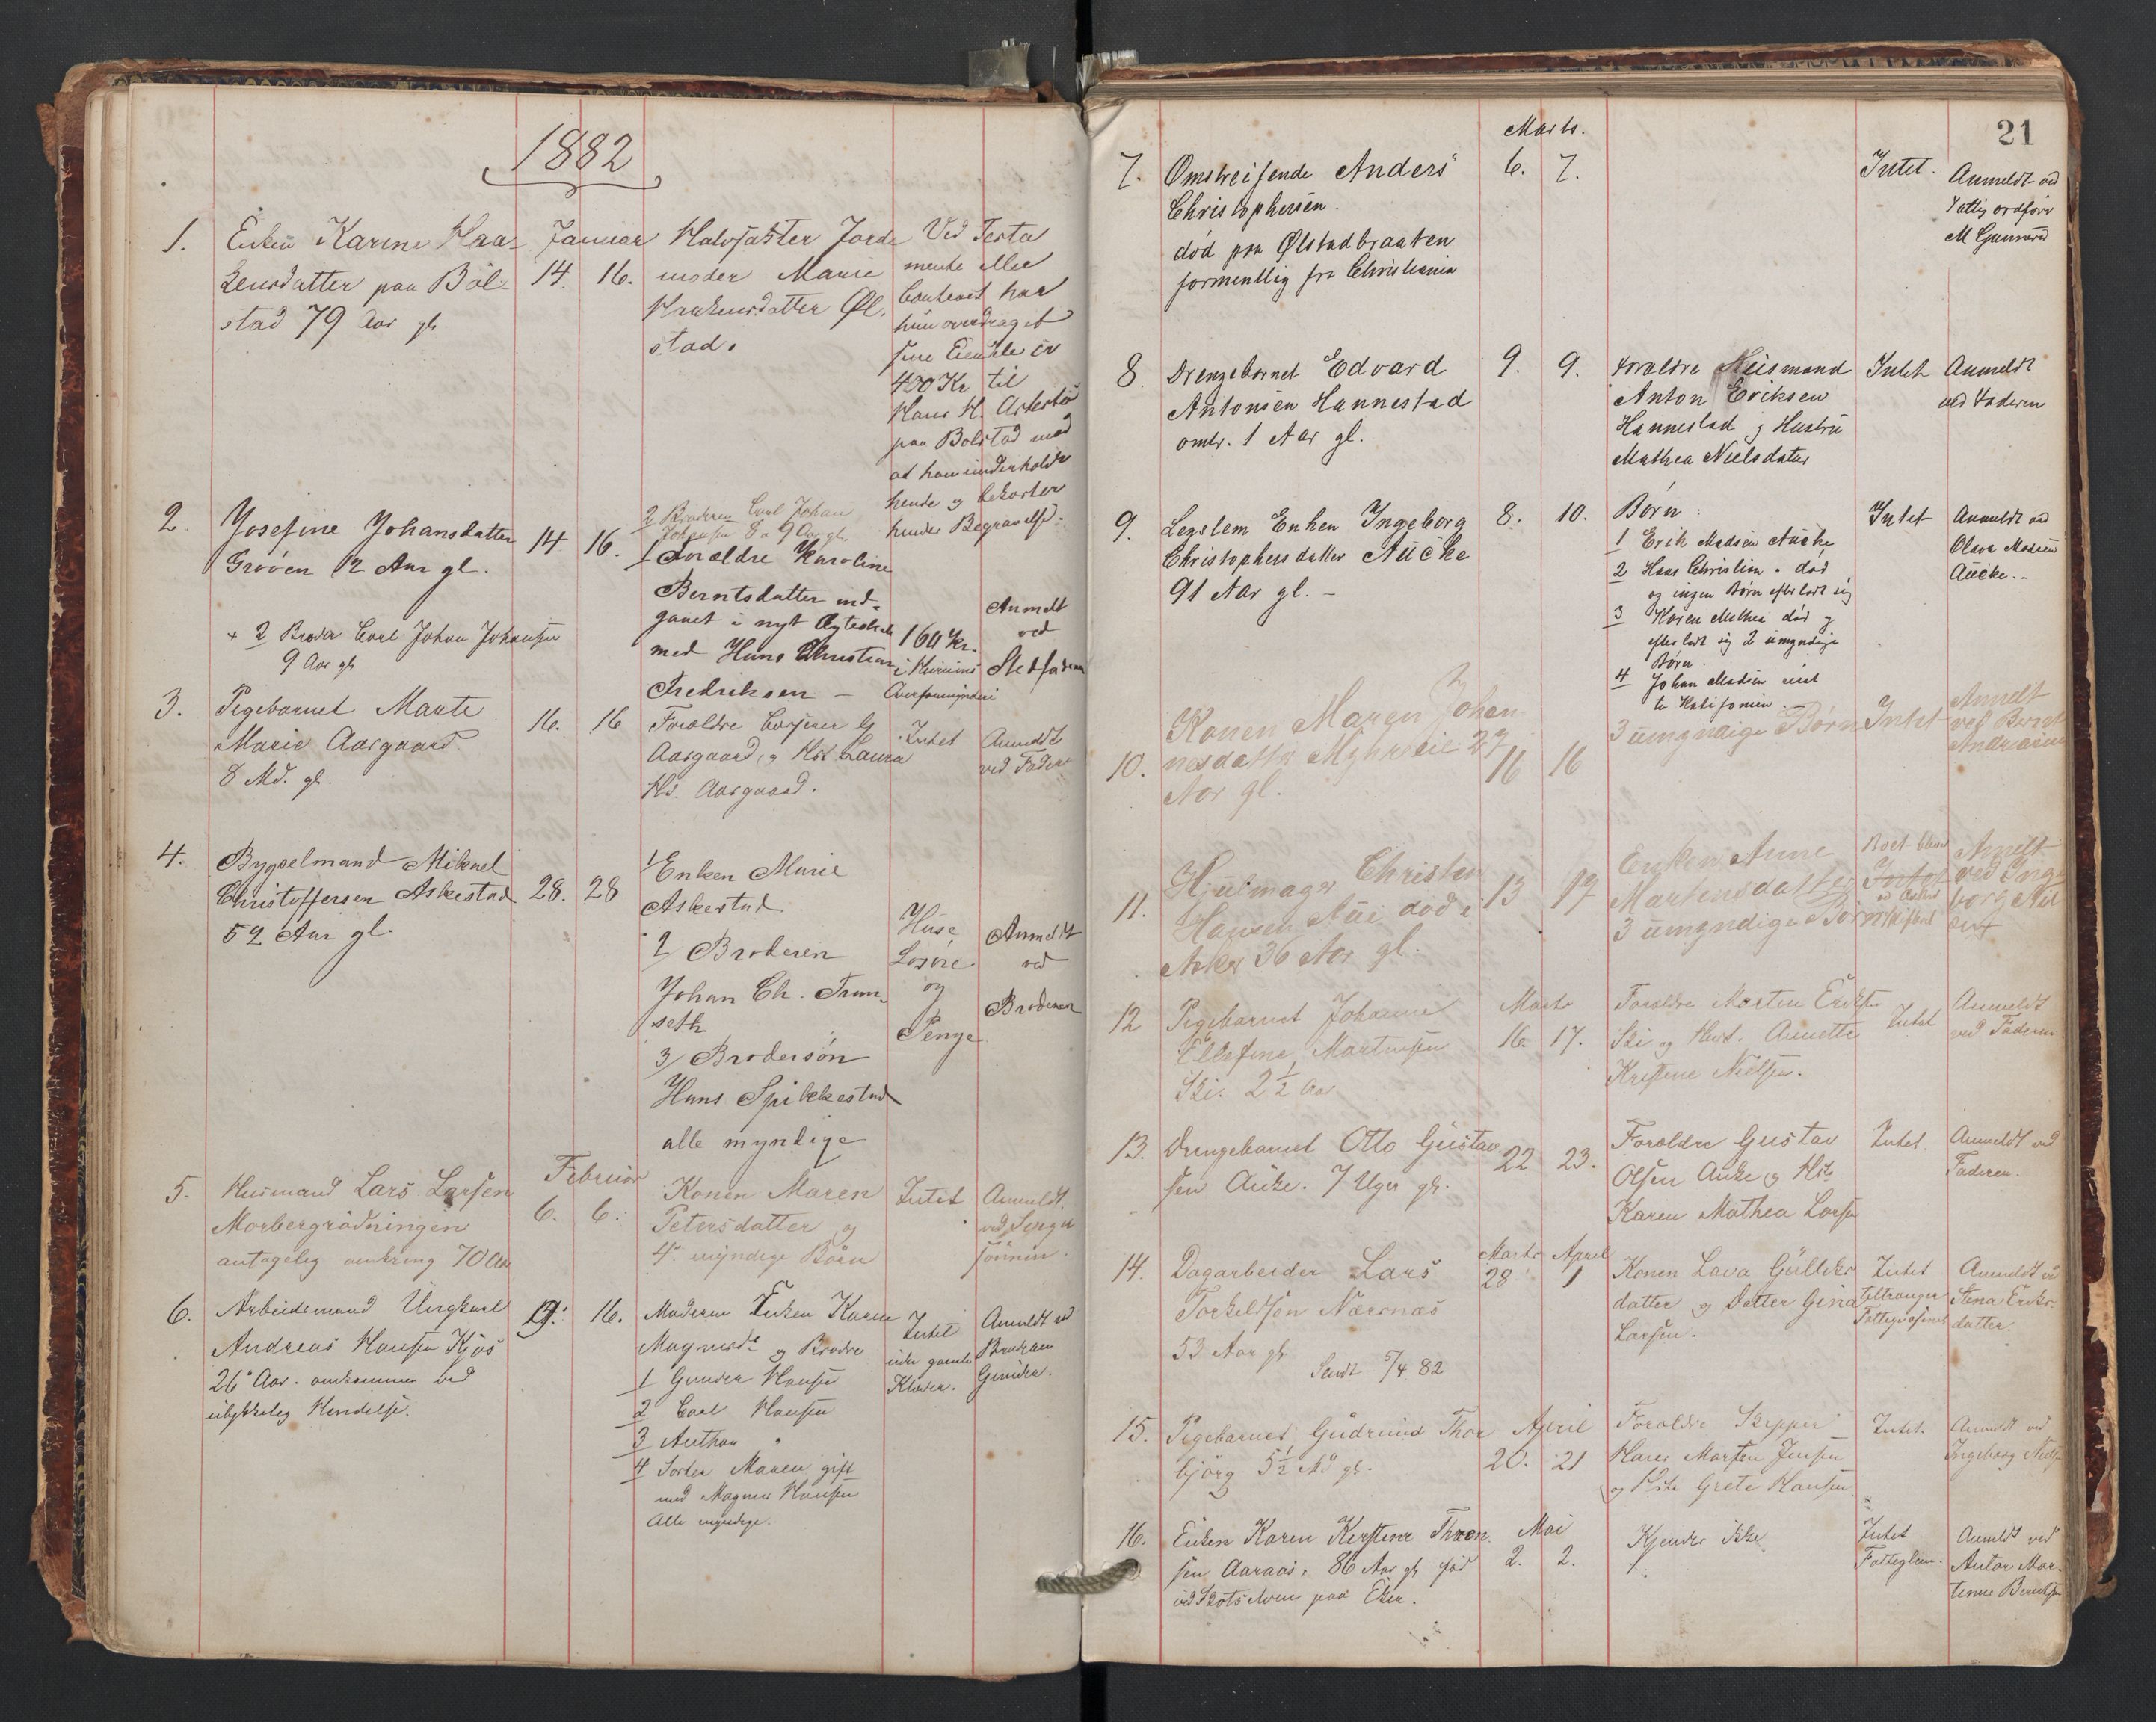 1882
1. Enken Karine Haa-
kensdatter paa Böl-
stad 79 Aar gl
Januar
14. 16.
Halvsøster Jorde
moder Marie
Haakensdatter Øl.
stad.
Ved Testa
mente eller
Contract har
hun overdraget
sine Eiendele
400 Kr til
Hans H. Askestad
paa Bolstad mod
at han underholder
hende og bekoster
hendes Begravelse.
2. Josefine Johansdatter
Grøven 12 Aar gl.
+ 2 Broder Carl Johan Johansen
9 Aar gl
14. 16.
2 Broderen Carl Johan
Johansen 8 a 9 Aar gl.
1 Forældre Karoline
Berntsdatter ind-
gaaet i nyt Ægteskab
med Hans Christian
Fredriksen —
160 Kr.
i Hurums
Overformynderi
Anmeldt
ved
Stedfaderen
3. Pigebarnet Marte
Marie Aasgaard
8 Md. gl.
16. 16
Forældre G
Aasgaard, og Laura
Aasgaard.
Intet
Anmeldt
ved Faderen
4. Bygselmand Mikael
Christoffersen Askestad
52 Aar gl.
28. 28
1 Enken Marie
Askestad
2 Broderen
Johan Ch. Tran-
seth
3/ Brodersön
Hans Spikkestad
alle myndige
Huse
Losöre
og
Penge
Anmeldt
ved
Broderen
5. Husmand Lars Larsen
Morbergrödningen
antagelig omkring 70 Aar
Februar
6. 6.
Konen Maren
Petersdatter og
4 myndige Börn
Intet
Anmeldt
ved Svoger
sönnen.
6. Arbeidsmand Ungkarl
Andreas Hansen Kjös
26 Aar. omkommen ved
ulykkelig Hendelse.
9. 16.
Moderen Enken Karen
Magnusd. og Brødre
1 Gunder Hansen
2 Carl Hansen
3 Anthon "
4 Søster Maren gift
med Magnus Hansen
Alle myndige.
Intet
uden gamle
Klæder.
Anmeldt ved
Broderen
Gunder.
21
Marts.
7. Omstreifende Anders
Christophersen.
död paa Ølstadbraaten
formentlig fra Christiania
6. 7.
Intet.
Anmeldt ved
Fattigordfører
M Gunnerud
8. Drengebarnet Edvard
Antonsen Hannestad
omtr. 1 Aar gl.
9. 9.
Forældre Husmand
Anton Eriksen
Hannestad og Hustru
Mathea Nielsdatter
Intet
Anmeldt
ved Faderen
9. Legslem Enken Ingeborg
Christophersdatter Aücke
91 Aar gl. -
8. 10.
Börn:
1 Erik Madsen Aucke
2 Hans Christian " död
og ingen Børn efterladt sig
3 Karen Mathea död og
efterladt sig 2 umyndige
Børn.
4 Johan Madsen reist
til Kalifonien.
Intet
Anmeldt ved
Olava Madsen
Aücke. -
10. Konen Maren Johan
nesdatter 27
Aar gl.
16 16
3 umyndige Børn
Intet
Anmeldt
ved Bernt
Andreasen
11. Hjulmager Christian
Hansen Aue död i
Asker 36 Aar gl.
13 17
Enken Anne
Martensdatter
3 umyndige Börn
Intet
Anmeldt
ved Inge
borg
12 Pigebarnet Johanne
Martinsen
Ski. 2 1/2 Aar
Marts
16. 17.
Forældre Morten Eriksen
Ski og Hust. Annette
Kristine Nielsen.
Intet
Anmeldt
ved Faderen
13. Drengebarnet Otto Gustav
sen Auke. 7 Uger gl.
22 23.
Forældre Gustav
Olsen Auke og Hst.
Karen Mathea Larsen
Intet.
Anmeldt ved
Faderen.
14. Dagarbeider Lars
Torkeldsen Nærsnæs
53 Aar gl.
Sendt 5/4 82
Marts April
28 1
Konen Lava Gulliks
datter og Datter Gina
Larsen.
Intet
tiltrænger
Fattigvæsenet
Anmeldt ved
Stena Eriks
datter.
15. Pigebarnet Gudrund Thor
björg 5 1/2 Md gl.
April
20. 21
Forældre Skipper
Hans Morten Jensen
og Hst. Grete Hansen
Intet.
Anmeldt ved
Ingeborg
16. Enken Karen Kirstine Thoen
sen Aaraas, 86 Aar gl. född
ved Skotselven paa Eker.
Mai
2. 2.
Kjendes ikke
Intet
Fattiglem.
Anmeldt ved
Anton Mar-
tinus Berntsen